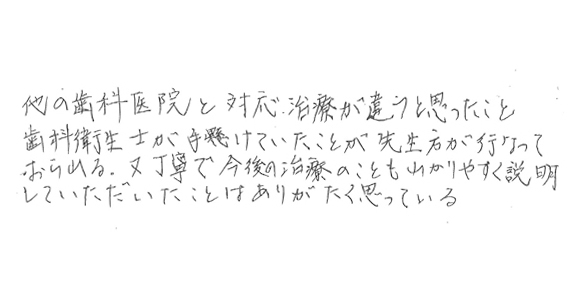 他の歯科医院と対応、治療が違うと思ったこと
歯科衛生士が手懸けていたことが先生方が行なって
おられる。又丁寧で今後の治療のこともわかりやすく説明
していただいたことはありがたく思っている